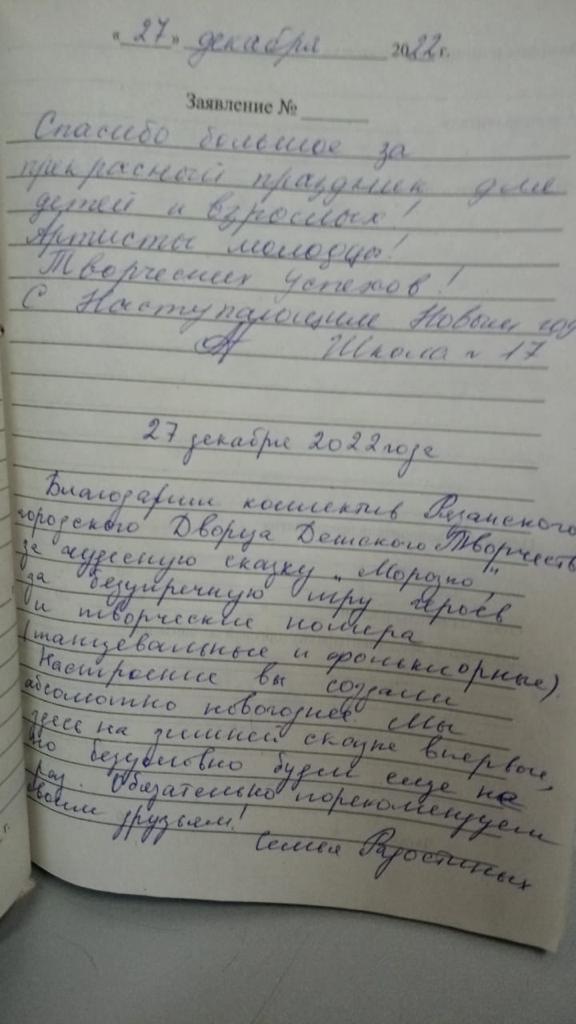 « 27 » декабря 2022 г.
Заявление № ______
Спасибо большое за
прекрасный праздник для
детей и взрослых!
Артисты молодцы!
Творческих успехов!
С Наступающим Новым год
Школа № 17
27 декабря 2022 года
Благодарим коллектив Рязанского
городского Дворца Детского Творчеств
за чудесную сказку „Морозко",
за безупречную игру героев
и творческие номера
(танцевальные и фольклорные).
Настроение вы создали
абсолютно новогоднее. Мы
здесь на зимней сказке впервые,
но безусловно будем еще не
раз. Обязательно порекомендуем
своим друзьям!
Семья Радостиных
г.